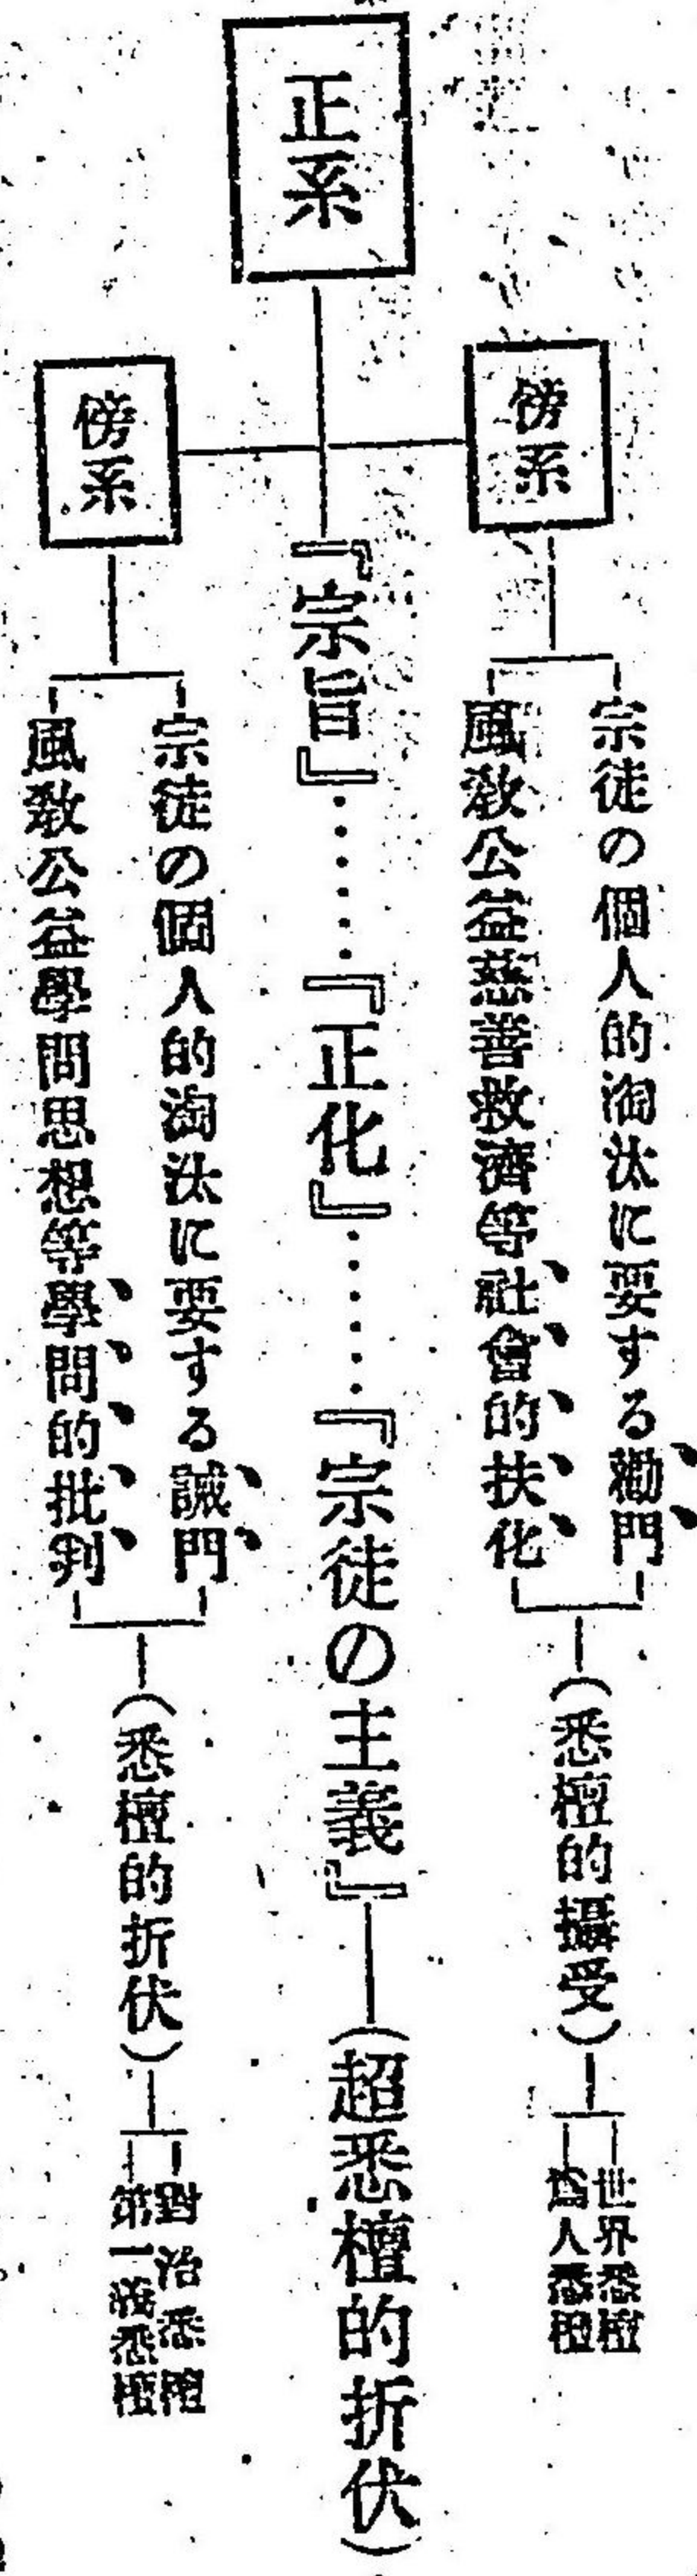 正系
傍系
宗徒の個人的淘汰に要する勸門
風敎公益慈善救濟等社會的扶化
(悉檀的攝受)
世界悉檀
爲人悉檀
『宗旨』……『正化』……『宗徒の主義』
(超悉檀的折伏)
傍系
宗徒の個人的淘汰に要する誡門
風敎公益學問思想等學問的批判
(悉檀的折伏)
對治悉檀
第一義悉檀